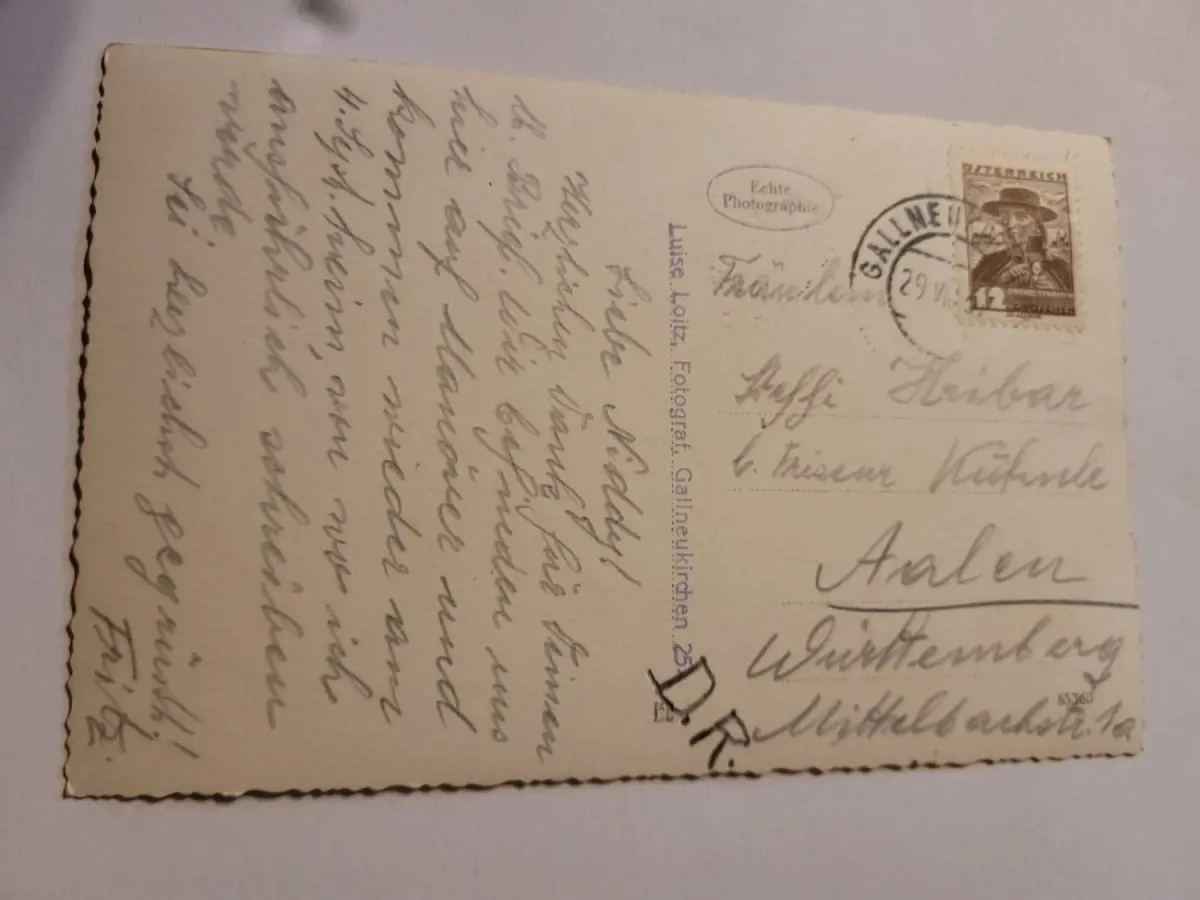 Liebe Niddy!
Herzlichen Dank für Deinen
lb. Brief. Wir befinden uns
hier auf Manöver und
kommen wieder am
4. Sept. heim, von wo ich
ausführlich schreiben
werde.
Sei herzlichst gegrüßt!!
Fritz.
Luise Loitz, Fotograf, Gallneukirchen 25.
Echte
Photographie
ÖSTERREICH
12
GALLNEU
29 VIII
Fräulein
Steffi Hribar
b. Friseur Kühnle
Aalen
Württemberg
85360
Mittelbachstr. 1a
D.R.